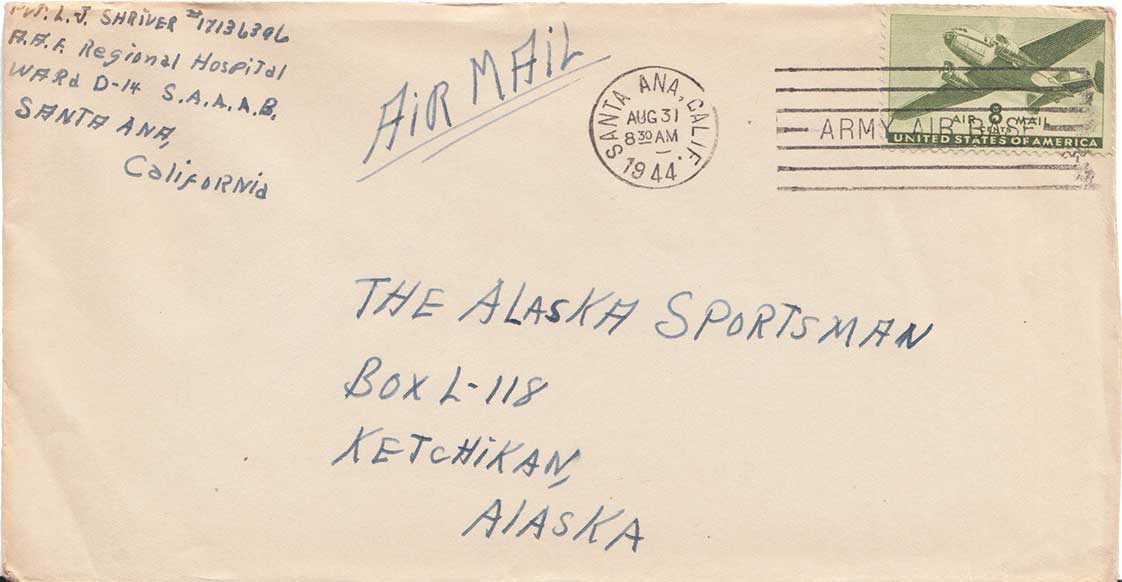 Pvt. L. J. SHRIVER #17136396
A.A.F. Regional Hospital
WARd D-14 S.A.A.A.B.
SANTA ANA,
California
AiR MAiL
SANTA ANA, CALIF.
AUG 31
8 30 AM
1944
ARMY AIR BASE
AIR MAIL
8
CENTS
UNITED STATES OF AMERICA
THE ALASKA SPORTSMAN
BOX L-118
KETCHiKAN,
AlASKA